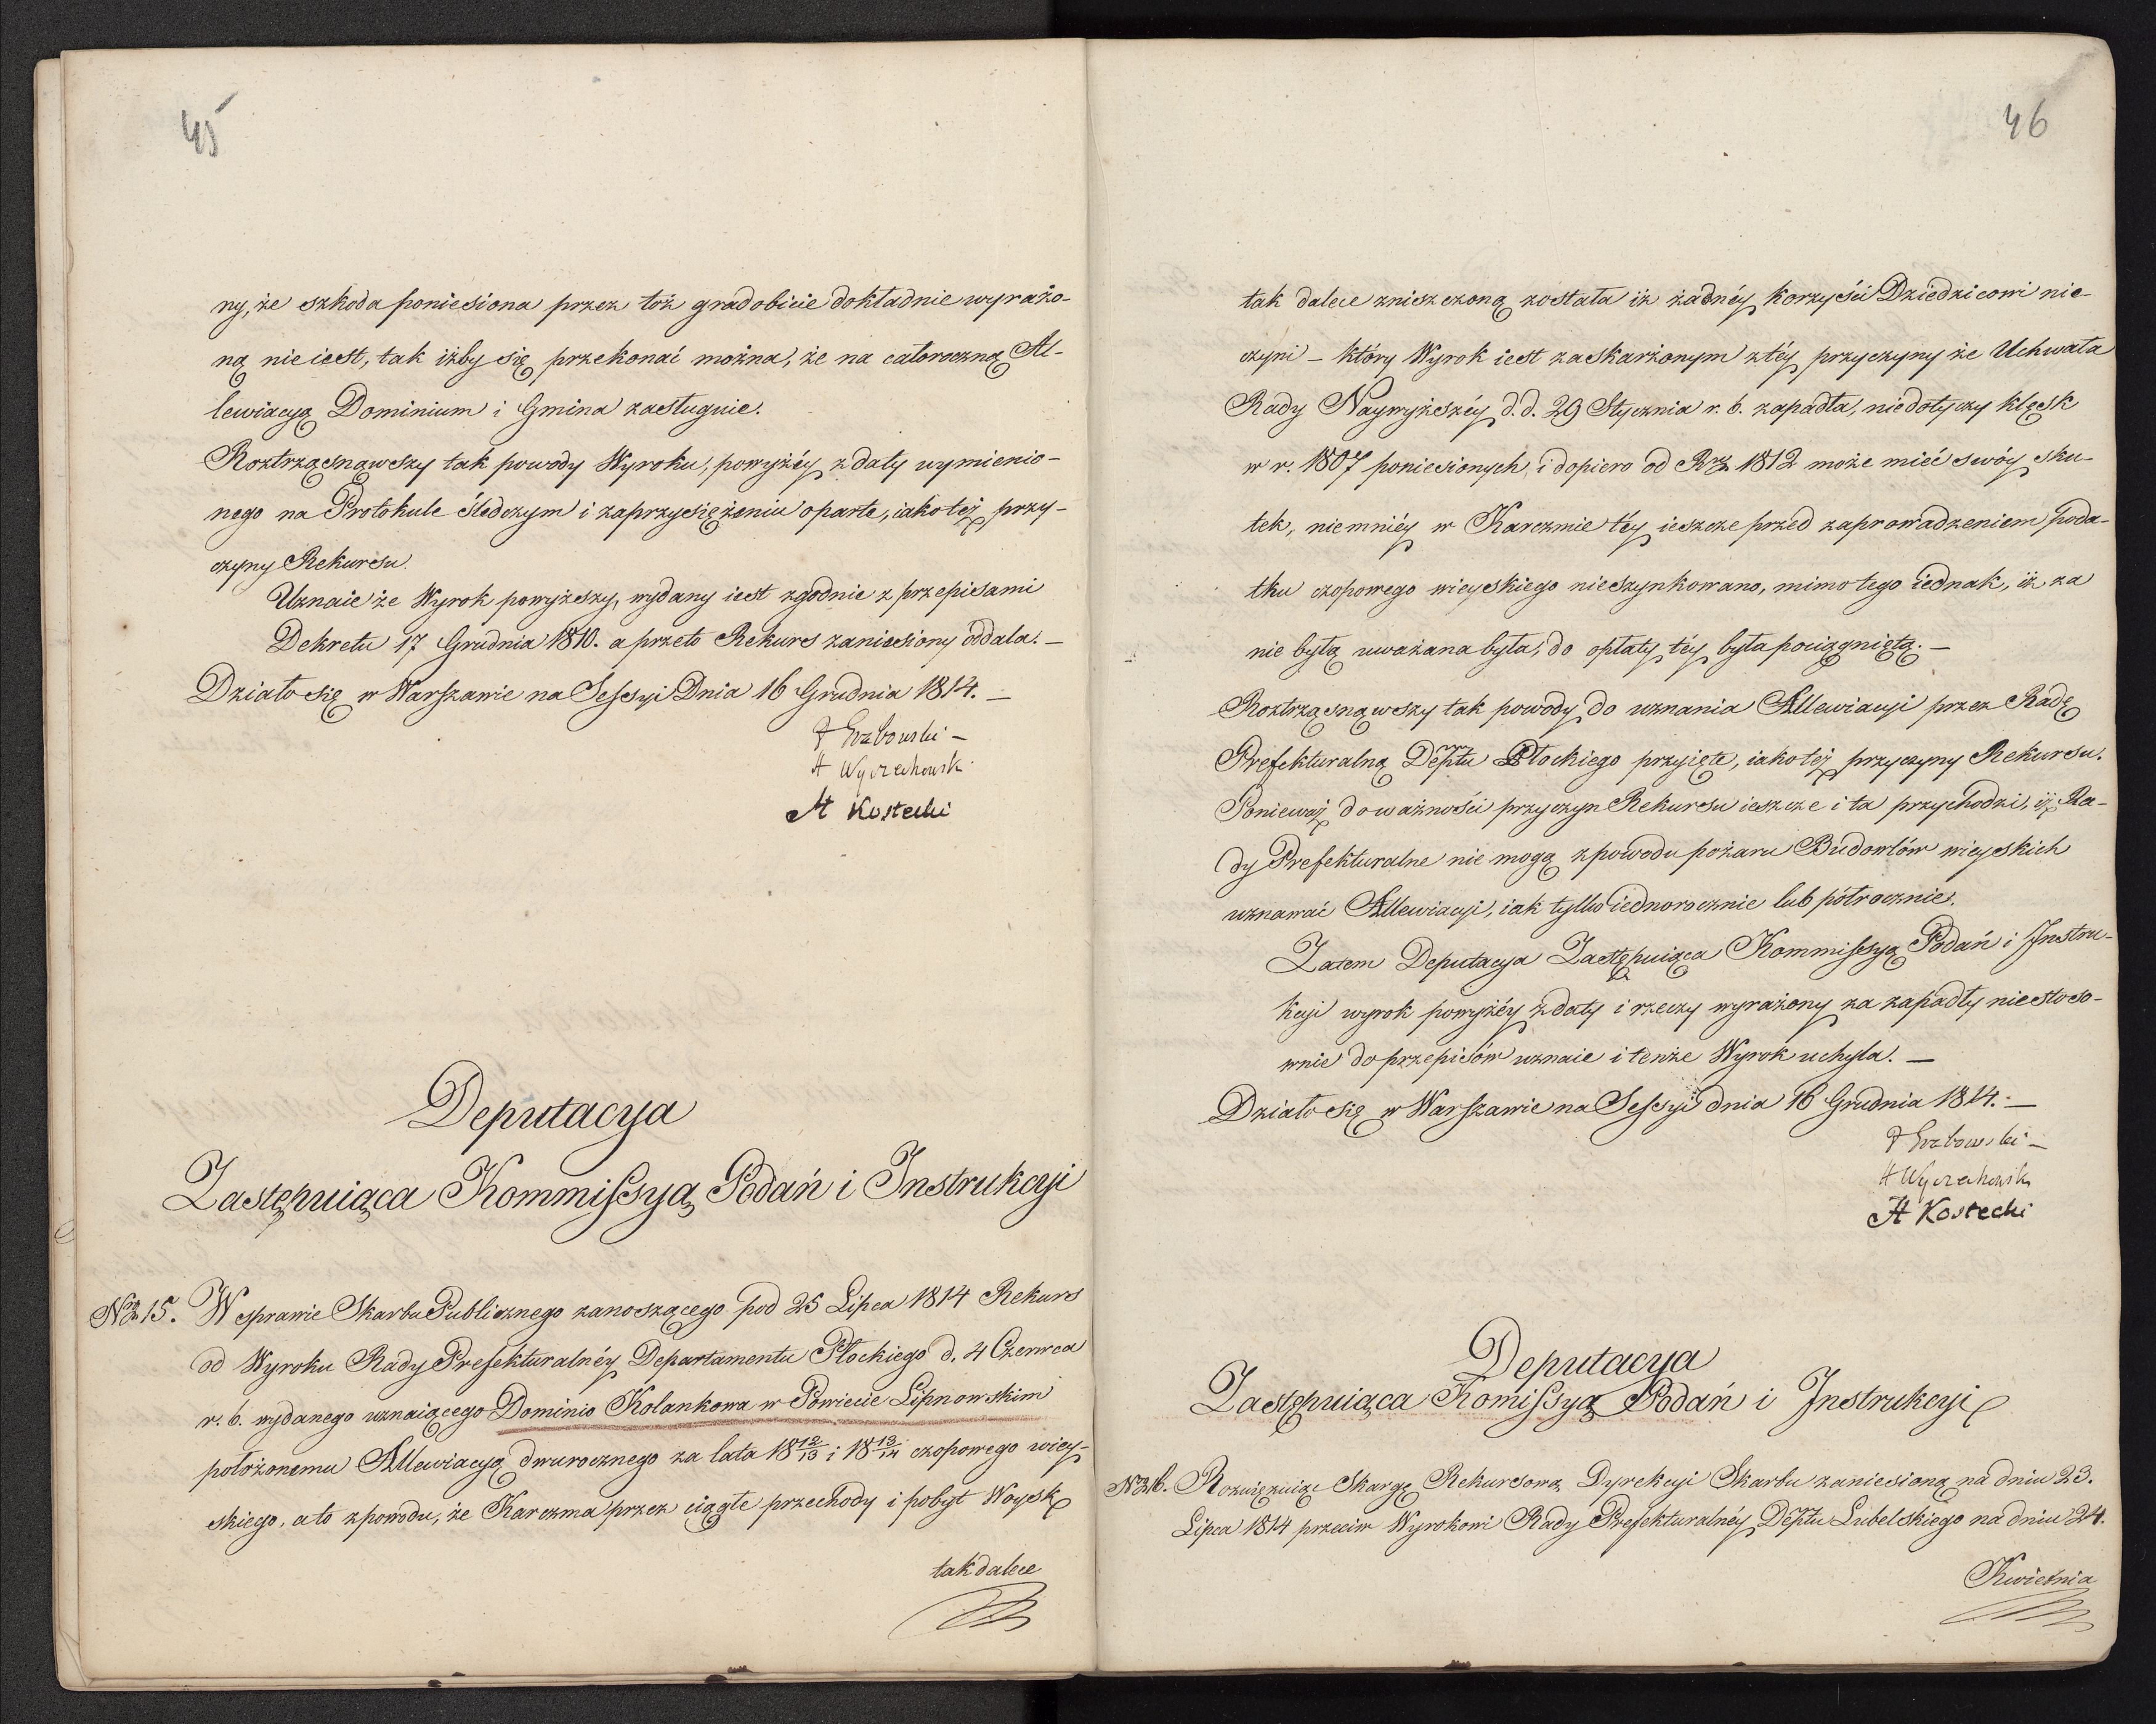 45
ny, że szkoda poniesiona przez toż gradobicie dokładnie wyrażo-
ną nie iest, tak iżby się przekonać można, że na całoroczną Al-
lewiacyą Dominium i Gmina zasługuie.
Roztrząsnąwszy tak powody Wyroku, powyżéy z daty wymienio-
nego na Protokule śledczym i zaprzysiężeniu oparte, iako też przy-
czyny Rekursu.
Uznaie że Wyrok powyższy, wydany iest zgodnie z przepisami
Dekretu 17 Grudnia 1810. a przeto Rekurs zaniesiony oddala. —
Działo się w Warszawie na Sessyi Dnia 16 Grudnia 1814. —
F Grabowski —
A Wyczechowsk
A Kostecki
Deputacya
Zastępuiąca Kommissyą Podań i Instrukcyi
Nro 15. W sprawie Skarbu Publicznego zanoszącego pod 25 Lipca 1814 Rekurs
od Wyroku Rady Prefekturalnéy Departamentu Płockiego d. 4 Czerwca
r. b. wydanego uznaiącego Dominio Kolankowa w Powiecie Lipnowskim
położonemu Allewiacyą dwurocznego za lata 18 12/13 i 18 13/14 czopowego wiey-
skiego, a to z powodu, że Karczma przez ciągłe przechody i pobyt Woysk
tak dalece
46
tak dalece zniszczoną została iż żadnéy korzyści Dziedzicowi nie-
czyni — który Wyrok iest zaskarżonym z téy przyczyny że Uchwała
Rady Naywyższéy d. d. 29 Stycznia r. b. zapadła, niedotyczy klęsk
w r. 1807 poniesionych, i dopiero od Rku 1812 może mieć swóy sku-
tek, niemniéy w Karczmie téy ieszcze przed zaprowadzeniem poda-
tku czopowego wieyskiego nieszynkowano, mimo tego iednak, iż za
nie byłą uważana była, do opłaty téy była pociągniętą. —
Roztrząsnąwszy tak powody do uznania Allewiacyi przez Radę
Prefekturalną Deptu Płockiego przyięte, iako też przyczyny Rekursu.
Ponieważ do ważności przyczyn Rekursu ieszcze i ta przychodzi, iż Ra-
dy Prefekturalne nie mogą z powodu pożaru Budowlów wieyskich
uznawać Allewiacyi, iak tylko iednorocznie lub półrocznie.
Zatem Deputacya Zastępuiąca Kommissyą Podań i Instru-
kcyi wyrok powyżéy z daty i rzeczy wyrażony za zapadły niestoso-
wnie do przepisów uznaie i tenże Wyrok uchyla. —
Działo się w Warszawie na Sessyi dnia 16 Grudnia 1814. —
F Grabowski —
A Wyczechowsk
A Kostecki
Deputacya
Zastępuiąca Komissyą Podań i Instrukcyi
Nro 16. Rozwięzuiąc Skargę Rekursową Dyrekcyi Skarbu zaniesioną na dniu 23.
Lipca 1814 przeciw Wyrokowi Rady Prefekturalnéy Deptu Lubelskiego na dniu 24.
Kwietnia